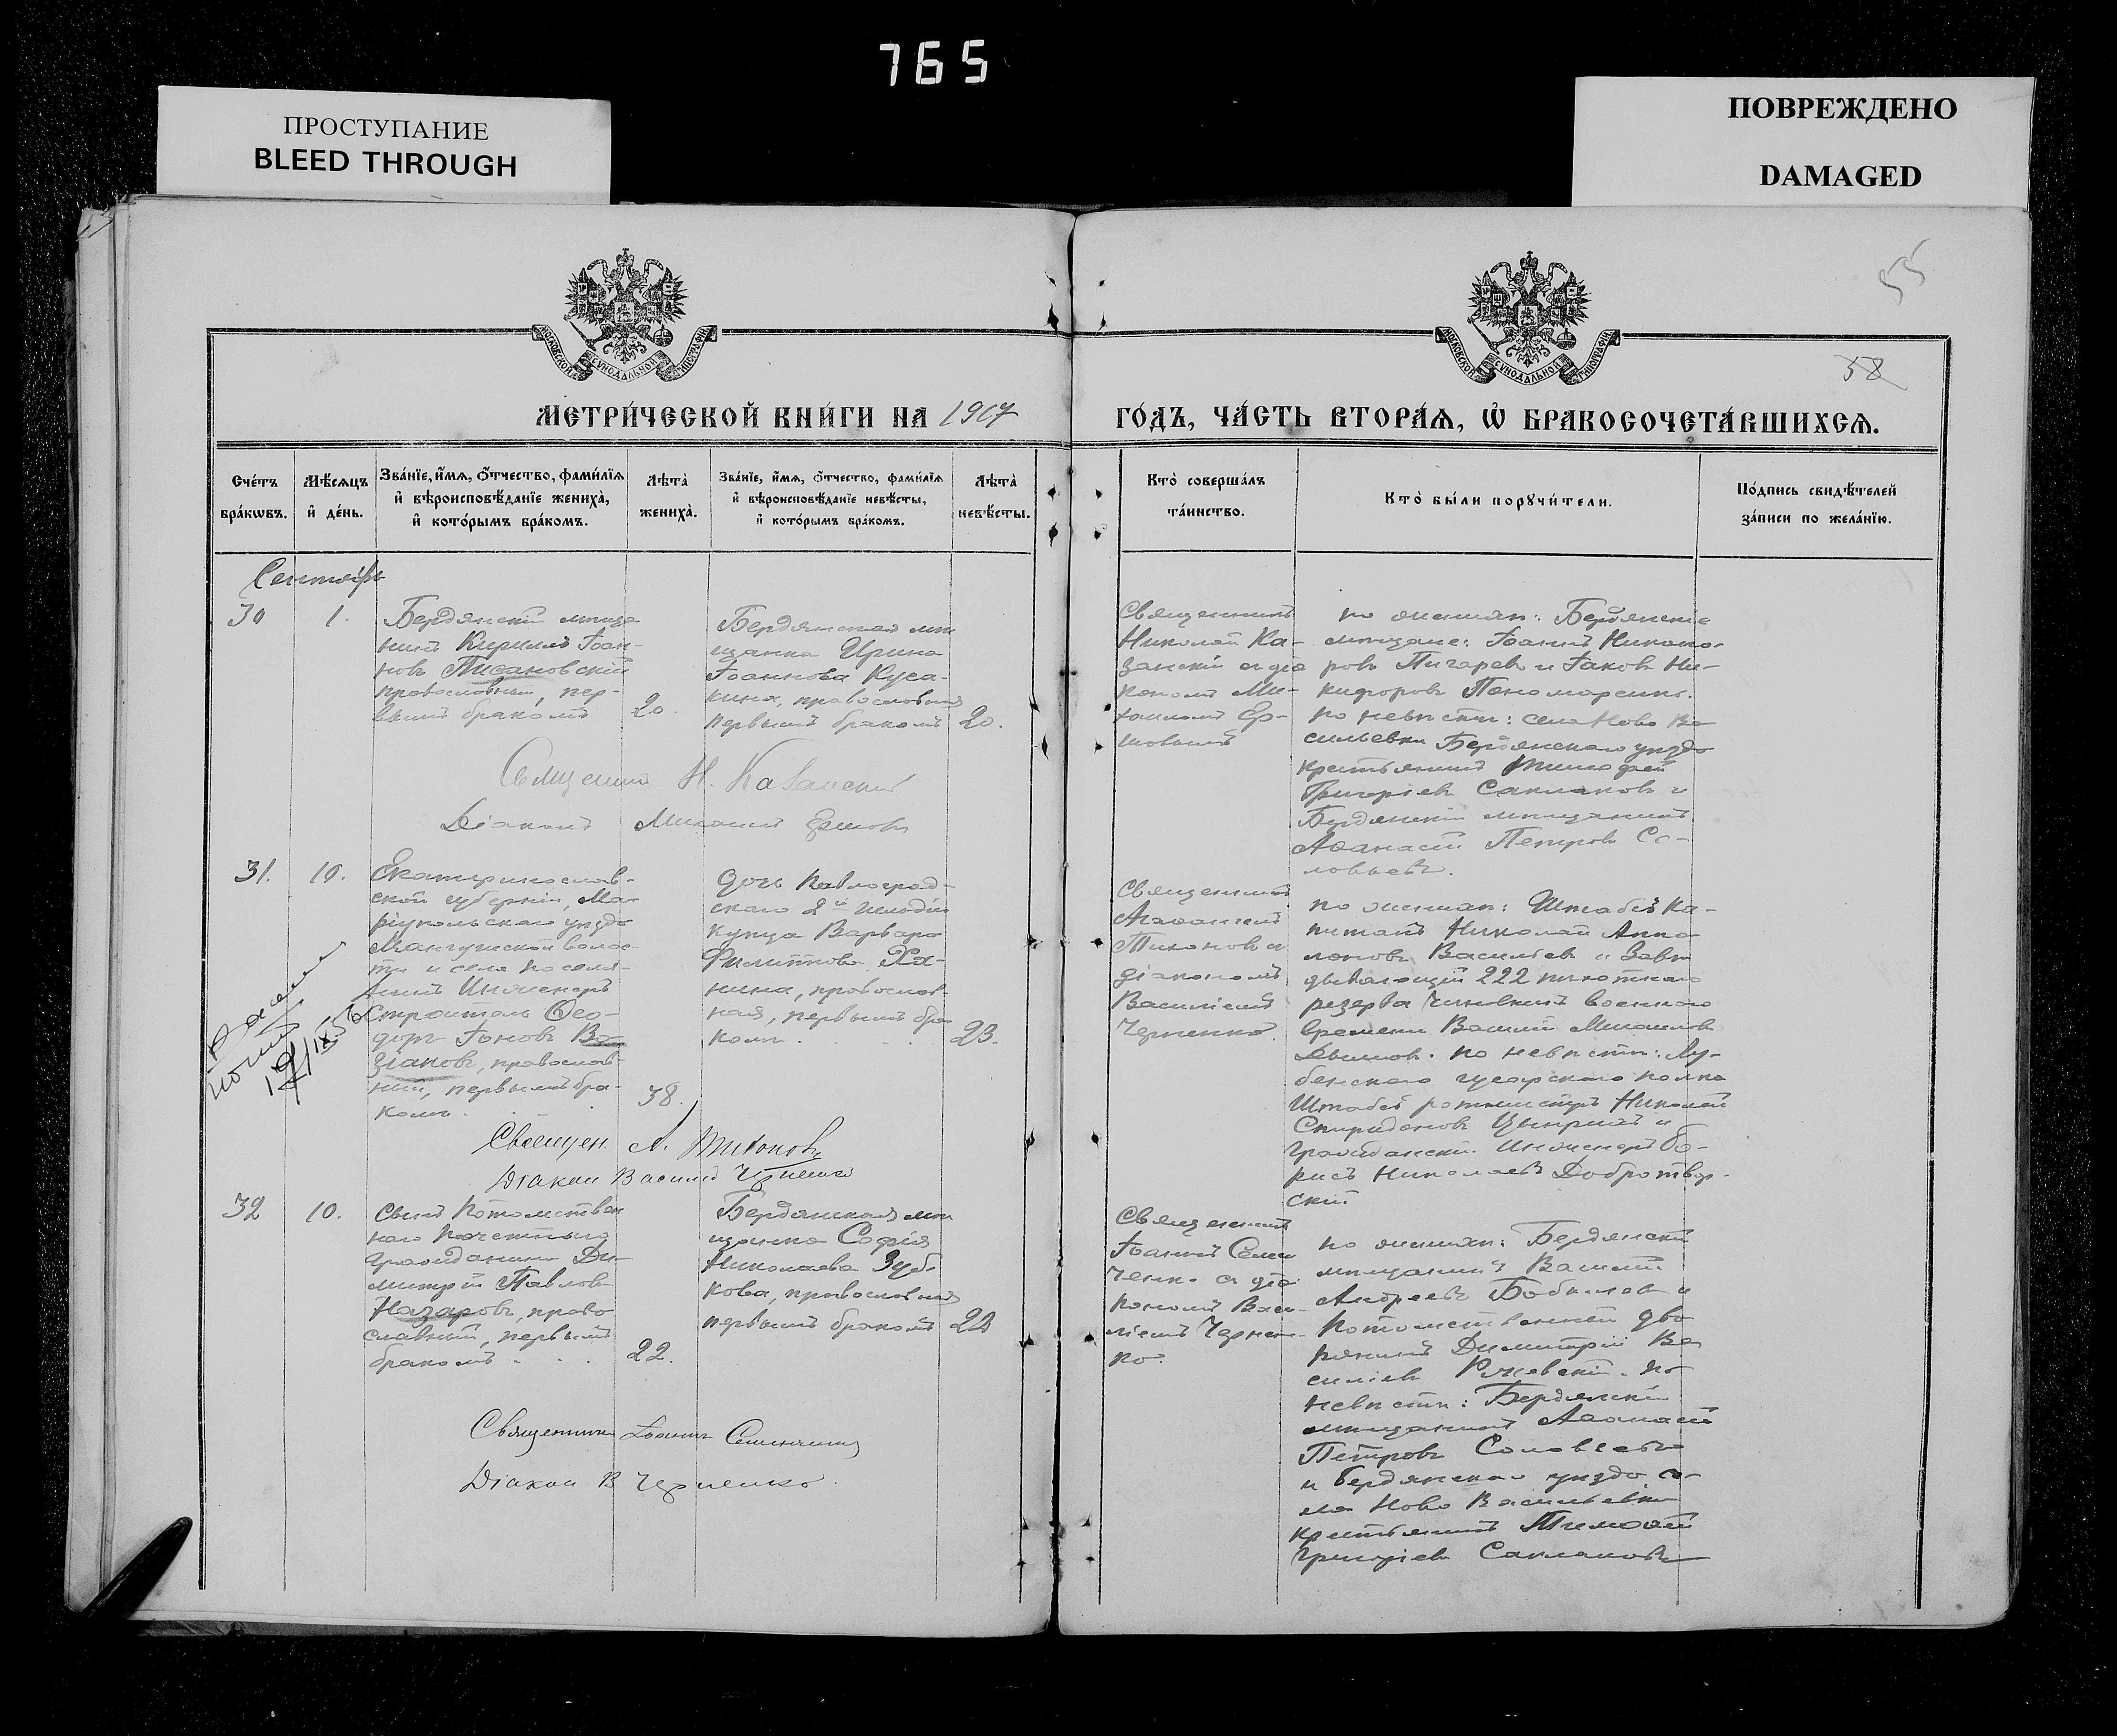 765
ПРОСТУПАНИЕ
BLEED THROUGH
ПОВРЕЖДЕНО
DAMAGED
55
58
МОСКОВСКОЙ СѴНОДАЛЬНОЙ ТИПОГРАФІИ
МОСКОВСКОЙ СѴНОДАЛЬНОЙ ТИПОГРАФІИ
МЕТРИ́ЧЕСКОЙ КНИ́ГИ НА 1907
ГО́ДЪ, ЧА́СТЬ ВТОРА́Я, Ѡ҆ БРАКОСОЧЕТА́ВШИХСЯ.
Сче́тъ
бра́кѡвъ.
Мѣ́сяцъ
и҆ де́нь.
Зва́нїе, и҆́мя, ѻ҆́тчество, фами́лїя
и҆ вѣроисповѣ́данїе жениха̀,
и҆ кото́рымъ бра́комъ.
Лѣта̀
жениха̀.
Зва́нїе, и҆́мя, ѻ҆́тчество, фами́лїя
и҆ вѣроисповѣ́данїе невѣ́сты,
и҆ кото́рымъ бра́комъ.
Лѣта̀
невѣ́сты.
Кто̀ соверша́лъ
та́инство.
Кто̀ бы́ли порꙋчи́тели.
По́дпись свидѣ́телей
за́писи по жела́нїю.
Сентябрь
30
1.
Бердянскій мѣща-
нинъ Кириллъ Іоан-
новъ Писановскій
православный, пер-
вымъ бракомъ
20.
Бердянская мѣ-
щанка Ирина
Іоаннова Куса-
кина, православная
первымъ бракомъ
20.
Священникъ
Николай Ка-
занскій съ діа
кономъ Ми-
хаиломъ Ер-
шовымъ
по женихѣ: Бердянскіе
мѣщане: Іоаннъ Никано-
ровъ Пигаревъ и Іаковъ Ни-
кифоровъ Пономаренко.
по невѣстѣ: села Ново Ва
сильевки Бердянскаго уѣзда
крестьянинъ Тимофей
Григоріевъ Саклаковъ и
Бердянскій мѣщанинъ
Аѳанасій Петровъ Со-
ловьевъ.
Священникъ Н. Казанскій
Діаконъ Михаилъ Ершовъ
31.
10.
Екатеринослав-
ской губерніи, Ма-
ріупольскаго уѣзда
Мангушской волос-
ти и села поселя-
нинъ Инженеръ
Строитель Ѳео-
доръ Іоновъ Ва-
зіановъ, православ-
ный, первымъ бра-
комъ.
38.
дочь Павлоград-
скаго 2й гильдіи
купца Варвара
Филиппова Ха-
нина, православ-
ная, первымъ бра
комъ.
23.
Священникъ
Тихоновъ съ
діакономъ
Василіемъ
Черненко.
по женихѣ: Штабсъ Ка-
питанъ Николай Аппо
лоновъ Васильевъ и Завѣ
дывающій 222 пѣхотнаго
резерва чиновникъ военнаго
времени Василій Михаиловъ
по невѣстѣ: Лу-
бенскаго гусарскаго полка
Штабсъ ротмистръ Николай
Спиридоновъ и
гражданскій Инженеръ Бо-
рисъ Николаевъ Добротвор-
скій
Священ. А. Тихоновъ
Діаконъ Василій Черненко
32
10.
Сынъ Потомствен
наго Почетнаго
гражданина Ди-
митрій Павловъ
Назаровъ, право
славный, первымъ
бракомъ
22.
Бердянская мѣ
щанка Софія
Николаева Зуб-
кова, православная
первымъ бракомъ
22
Священникъ
Іоаннъ Семен
ченко съ діа
кономъ Васи-
ліемъ Чернен-
ко.
по женихѣ: Бердянскій
мѣщанинъ Василій
Андреевъ и
потомственный дво
рянинъ Димитрій Ва
силіевъ Ржевскій. по
невѣстѣ: Бердянскій
мѣщанинъ Аѳанасій
Петровъ Соловьевъ
и Бердянскаго уѣзда се-
ла Ново Васильевки
крестьянинъ Тимоѳей
Григоріевъ Саклаковъ
Священникъ Іоаннъ Семенченко
Діаконъ В Черненко